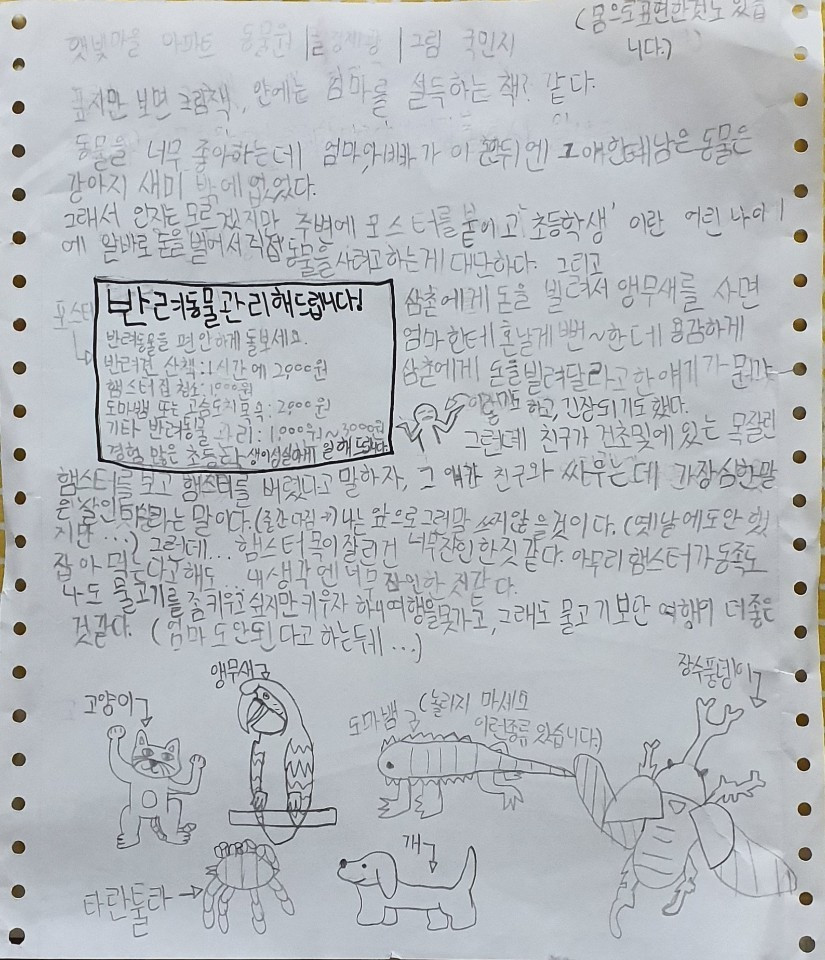 (몸으로 표현한것도 있습
니다.)
햇빛마을 아파트 동물원 | 글 정제광 | 그림 국민지
표지만 보면 그림책, 안에는 엄마를 설득하는 책? 같다.
동물을 너무 좋아하는데 엄마, 아빠가 이혼한뒤엔 그애한테 남은 동물은
강아지 새미 밖에 없었다.
그래서 인지는 모르겠지만, 주변에 포스터를 붙이고 '초등학생' 이란 어린 나이
에 알바로 돈을 벌어서 직접 동물을 사려고하는게 대단하다. 그리고
삼촌에게 돈을 빌려서 앵무새를 사면
엄마한테 혼날게 뻔~한데 용감하게
삼촌에게 돈을빌려달라고한 얘기가 뭔가
하고, 긴장되기도 했다.
포스터
반려동물관리해드립니다!
반려동물을 편안하게 돌보세요.
반려견 산책:1시간에 2,000원
햄스터집 청소:1,000원
도마뱀 또는 고슴도치 목욕: 2,000원
기타 반려동물 관리: 1,000원~3,000원
경험 많은 초등학생이 성실하게 일해 드립니다.
그런데 친구가 건초밑에있는 목잘린
햄스터를 보고 햄스터를 버렸다고 말하자, 그 애가 친구와 싸우는데 가장심한말
은 살인 라는 말이다. 나는 앞으로 그런말 쓰지않을것이다. (옛날에도안 했
지만...) 그런데... 햄스터 목이 잘린건 너무 잔인한짓 같다. 아무리 햄스터가 동족도
잡아 먹는다고 해도... 내 생각엔 너무 잔인한 짓같다.
나도 물고기를 좀 키우고 싶지만 키우자 하니 여행을못가고, 그래도 물고기보단 여행이 더좋은
것같다. (엄마도안된다고 하는데...)
고양이
앵무새
도마뱀 (놀라지 마세요
이런종류 있습니다.)
장수풍뎅이
타란툴라
개